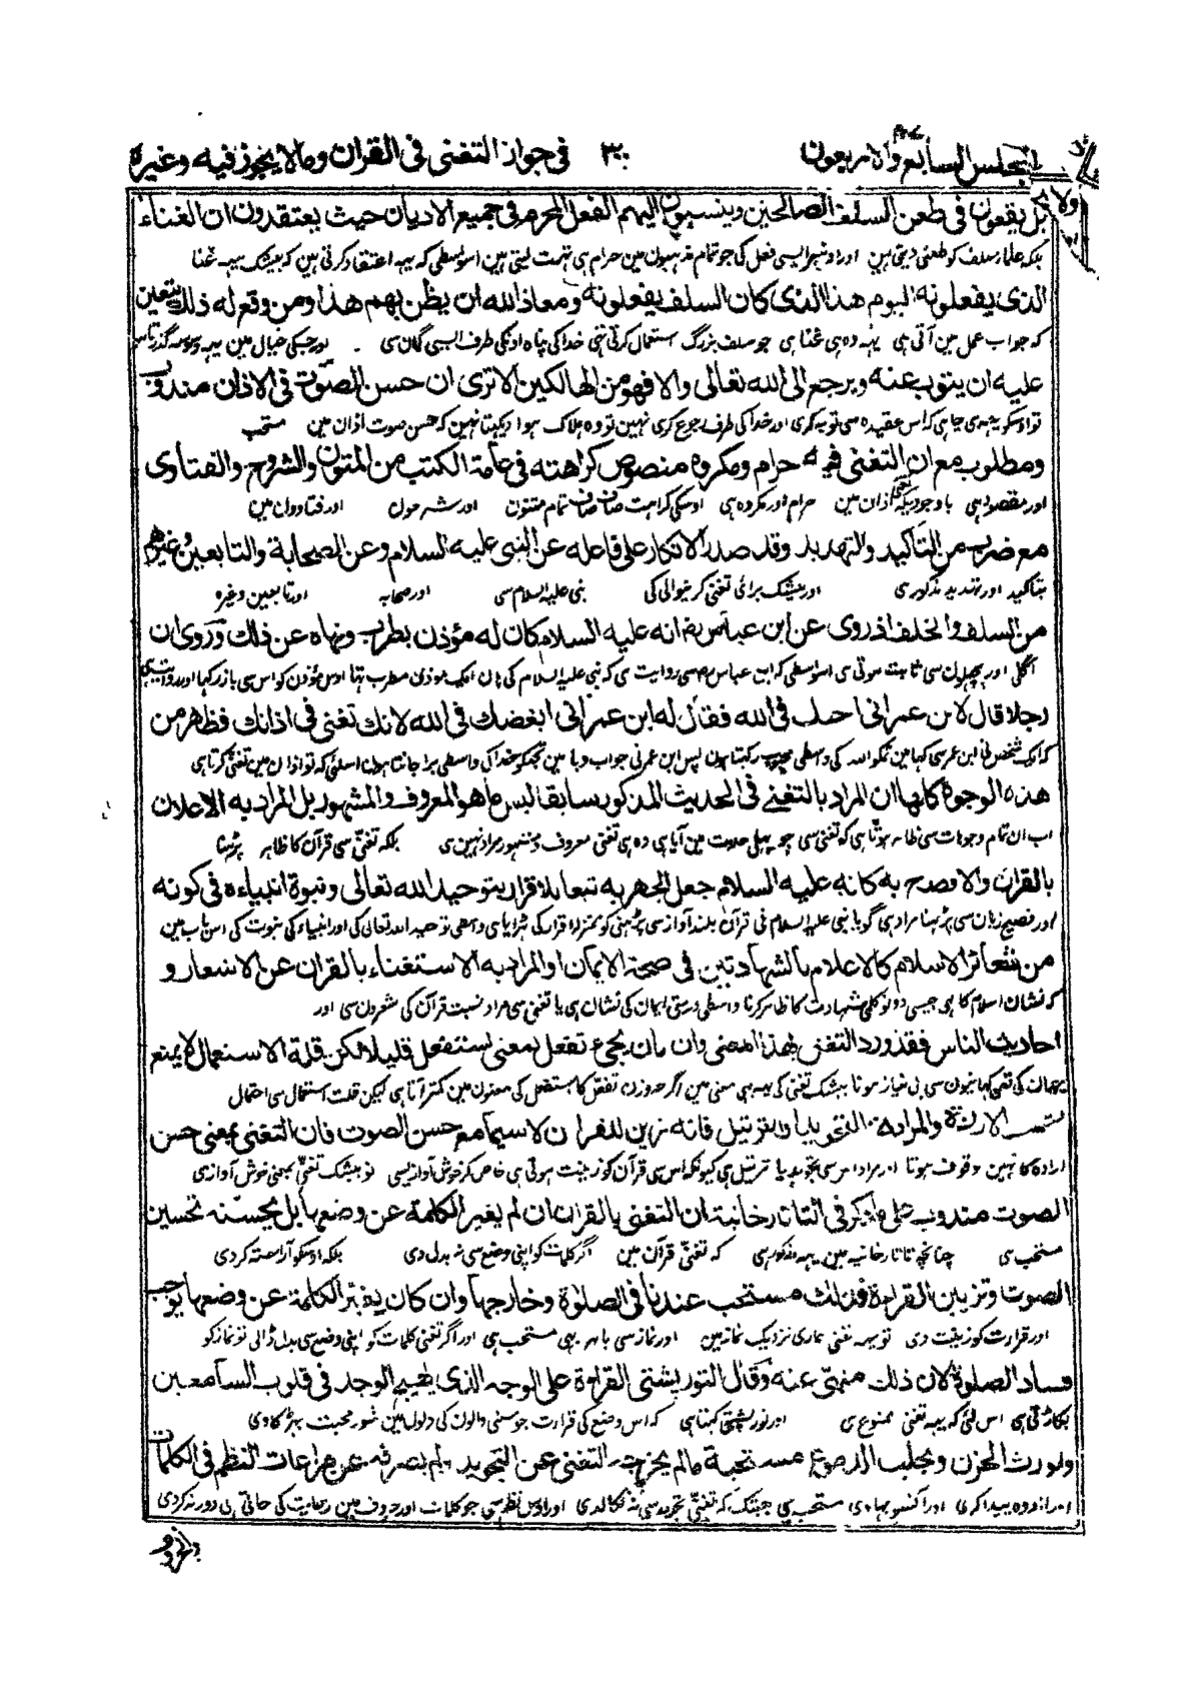 المجلس السابع والاربعون ٣٢٠ فى جواز التغنى فى القران وما لا يجوز فيه وغيره
بل يقعون فى طعن السلف الصالحين وينسبون اليهم الفعل المحرم فى جميع الاديان حيث يعتقدون ان الغناء
بلکہ علماء سلف کو طعنی دیتی ہین اور اونپر ایسی فعل کی جو تمام مذہبون مین حرام ہی تہمت لیتی ہین اسواسطی کہ یہہ اعتقاد کرتی ہین کہ بیشک یہہ غنا
الذى يفعلونه اليوم هذا الذى كان السلف يفعلونه ومعاذ الله ان يظن بهم هذا ومن وقع له ذلك يتعين
کہ جو اب عمل مین آتی ہی یہہ وہ ہی غنا ہی جو سلف بزرگ استعمال کرتی تہی خدا کی پناہ اونکی طرف ایسی گمان سی اور جسکی خیال مین یہہ وسوسہ گذرتا ہی
عليه ان يتوب عنه ويرجع الى الله تعالى والا فهو من الهالكين الا ترى ان حسن الصوت فى الاذان مندوب
تو اوسکو یہہ ہی چاہی کہ اس عقیدہ سی توبہ کری اور خدا کی طرف رجوع کری نہین تو وہ ہلاک ہوا دیکہتا نہین کہ حسن صوت اذان مین مستحب
ومطلوب مع ان التغنى فيه حرام ومكروه منصوص كراهته فى عامة الكتب من المتون والشروح والفتاوى
اور مقصود ہی باوجودیکہ تغنی اذان مین حرام اور مکروہ ہی اوسکی کراہت صاف صاف تمام متنون اور شرحون اور فتاوون مین
مع ضرب من التاكيد والتهديد وقد صدر الانكار على فاعله عن النبى عليه السلام وعن الصحابة والتابعين وغيرهم
بتاکید اور تہدید مذکور ہی اور بیشک برائی تغنی کرنیوالی کی نبی علیہ السلام سی اور صحابہ اور تابعین وغیرہ
من السلف والخلف اذ روى عن ابن عباس رض انه عليه السلام كان له مؤذن يطرب ونهاه عن ذلك وروى ان
اگلی اور پچہلون سی ثابت ہوئی ہی اسواسطی کہ ابن عباس رض سی روایت ہی کہ نبی علیہ السلام کی ہان ایک موذن مطرب تہا اوس مؤذن کو اس سی باز رکہا اور روایت ہی
رجلا قال لابن عمر انى احبك فى الله فقال له ابن عمر انى ابغضك فى الله لانك تغنى فى اذانك فظهر من
کہ ایک شخص نی ابن عمر سی کہا مین تمکو اللہ کی واسطی محبوب رکہتا ہون پس ابن عمر نی جواب دیا مین تجہکو خدا کی واسطی برا جانتا ہون اسلئی کہ تو اذان مین تغنی کرتا ہی
هذه الوجوه كلها ان المراد بالتغنى فى الحديث المذكور سابقا ليس ما هو المعروف والمشهور بل المراد به الاعلان
اب ان تمام وجوہات سی ظاہر ہوتا ہی کہ تغنی سی جو پہلی حدیث مین آیا ہی وہ ہی تغنی معروف و مشہور مراد نہین ہی بلکہ تغنی سی قرآن کا ظاہر پڑہنا
بالقران والافصح به كانه عليه السلام جعل الجهر به تبعا لاقرار بتوحيد الله تعالى ونبوة انبياءه فى كونه
اور فصیح زبان سی پڑہنا مراد ہی گویا نبی علیہ السلام نی قرآن بلند آواز سی پڑہنی کو بمنزلہ اقرار کی ٹہرایا ہی توحید اللہ تعالی کی اور انبیاء کی نبوت کی اس باب مین
من شعائر الاسلام كالاعلام بالشهادتين فى صحة الايمان او المراد به الاستغناء بالقران عن الاشعار و
کہ نشان اسلام کا ہی جیسی دونو کلمی شہادت کا ظاہر کرنا واسطی درستی ایمان کی نشان ہی یا تغنی سی مراد نسبت قرآن کی شعرون سی اور
احاديث الناس فقد ورد التغنى بهذا المعنى وان كان يجئ تفعل بمعنى يستفعل قليلا لكن قلة الاستعمال لا يمنع
کہانیون سی بی نیاز ہونا بیشک تغنی کی یہہ ہی معنی مین اگرچہ وزن تفعل کا استفعل کی معنون مین کمتر آتا ہی لیکن قلت استعمال سی احتمال
الارادة والمراد به التجويد او الترتيل فانه زين للقران لا سيما مع حسن الصوت فان التغنى بمعنى حسن
ارادہ کا نہین موقوف ہوتا اور مراد اس سی تجوید یا ترتیل ہی کیونکہ اس سی قرآن کو زینت ہوتی ہی خاص کر خوش آوازیسی تو بیشک تغنی بمعنی خوش آوازی
الصوت مندوب على ما ذكر فى التاتارخانية ان التغنى بالقران ان لم يغير الكلمة عن وضعها بل يحسنه تحسين
مستحب ہی چنانچہ تاتارخانیہ مین یہہ مذکور ہی کہ تغنی قرآن مین اگر کلمات کو اپنی وضع سی نہ بدل دی بلکہ اوسکو آراستہ کر دی
الصوت وتزيين القراءة فذلك مستحب عندنا فى الصلوة وخارجها وان كان يغير الكلمة عن وضعها يوجب
اور قراءت کو زینت دی تو یہہ تغنی ہماری نزدیک نماز مین اور نماز سی باہر بہی مستحب ہی اور اگر تغنی کلمات کو اپنی وضع سی بدل ڈالی تو نماز کو
فساد الصلوة لان ذلك منهى عنه وقال التوربشتى القراءة على الوجه الذى يهيج الوجد فى قلوب السامعين
بگاڑتی ہی اس لئی کہ یہہ تغنی ممنوع ہی اور توربشتی کہتا ہی کہ اس وضع کی قرارت جو سننی والون کی دلون مین شور محبت بہڑکاوی
ويورث الحزن ويجلب الدموع مستحبة مالم يخرجه التغنى عن التجويد ولم يصرفه عن مراعات النظم فى الكلمات
اور اندوہ پیدا کری اور آنسو بہاوی مستحب ہی جبتک کہ تغنی تجوید سی نہ نکالدی اور اوس نظم سی جو کلمات اور حروف مین رعایت کی جاتی ہی دور نہ کردی